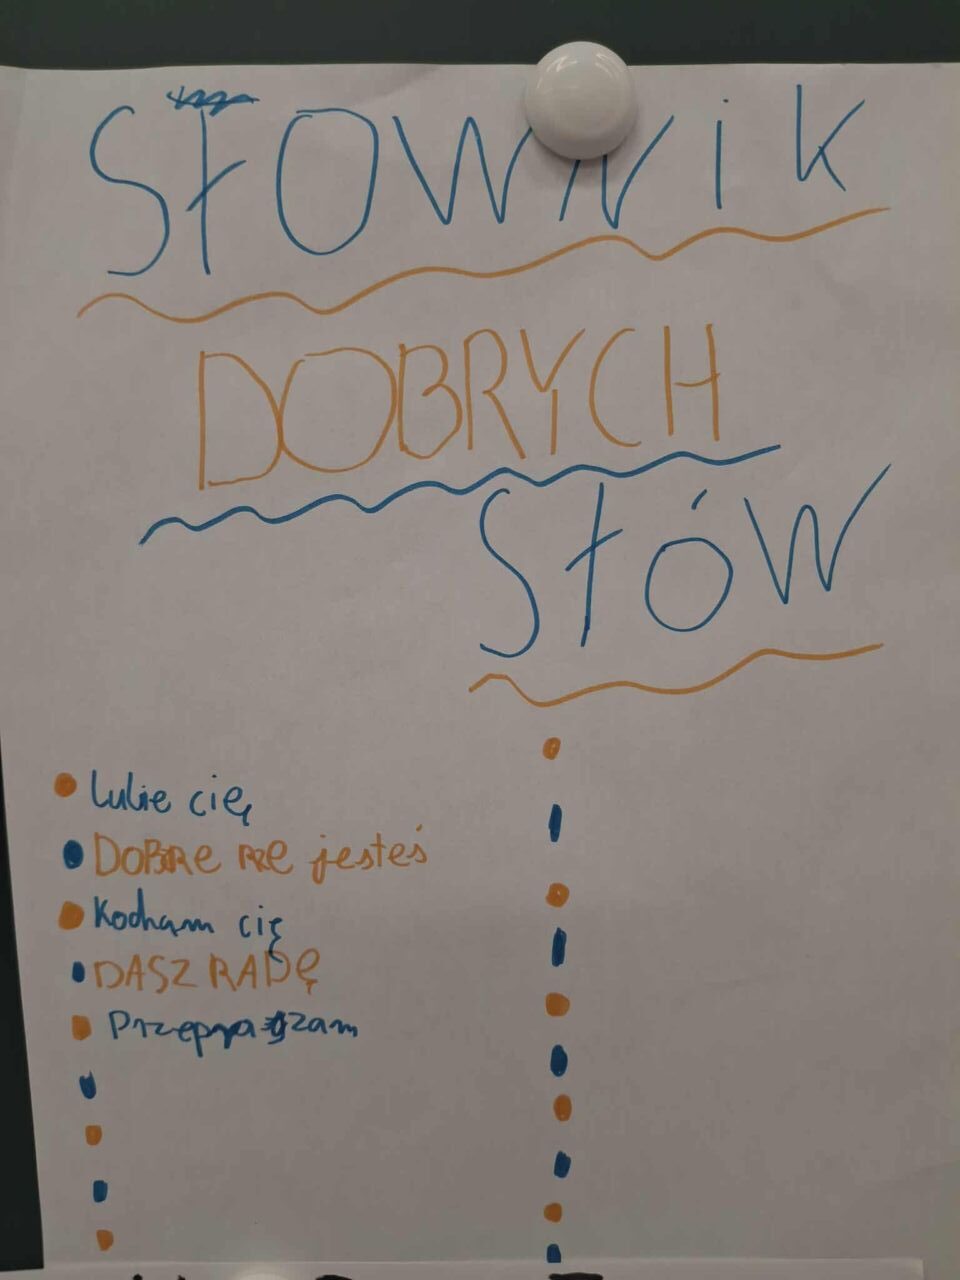 SŁOWNIK
DOBRYCH
SŁÓW
Lubie cię
DOBRE jesteś
Kocham cię
DASZ RADĘ
Przepraszam